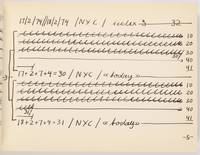 17/2/74//18/2/74 / NYC / index 3 32
10
20
30
30/ 40
41
17+2+7+4=30 / NYC / « today »
10
20
30
31/ 40
41
18+2+7+4=31 / NYC / « today »
-5-